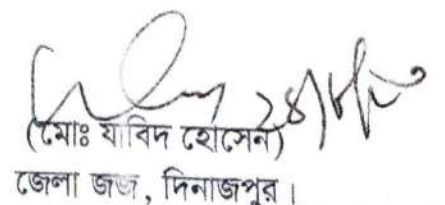 (মোঃ যাবিদ হোসেন)
জেলা জজ, দিনাজপুর।